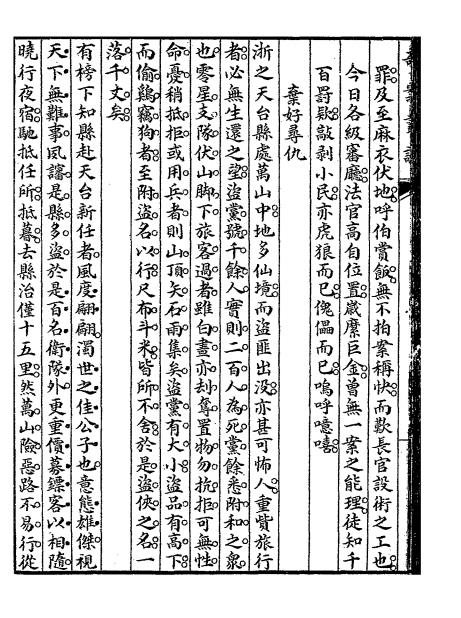 罪及至麻衣伏地呼伯賞飯無不拍案稱快而歎長官設術之工也
今日各級審廳法官高自位置歲縻巨金曾無一案之能理徒知千
百罸鍰敲剥小民亦虎狼而已傀儡而已嗚呼噫嘻
棄好尋仇
浙之天台縣處萬山中地多仙境而盜匪出没亦甚可怖人重貲旅行
者必無生還之望盜黨號千餘人實則二百人為死黨餘悉附和之衆
也零星支隊伏山脚下旅客過者雖白晝亦刦奪置物勿抗拒可無性
命憂稍抵拒或用兵者則山頂矢石雨集矣盜黨有大小盜品有高下
而偷鷄竊狗者至附盜名以行尺布斗米皆所不舍於是盜俠之名一
落千丈矣
有榜下知縣赴天台新任者風度翩翩濁世之佳公子也意態雄傑視
天下無難事夙譜是縣多盜於是百名衛隊外更重價募鏢客以相隨
曉行夜宿馳抵任所抵暮去縣治僅十五里然萬山險惡路不易行從